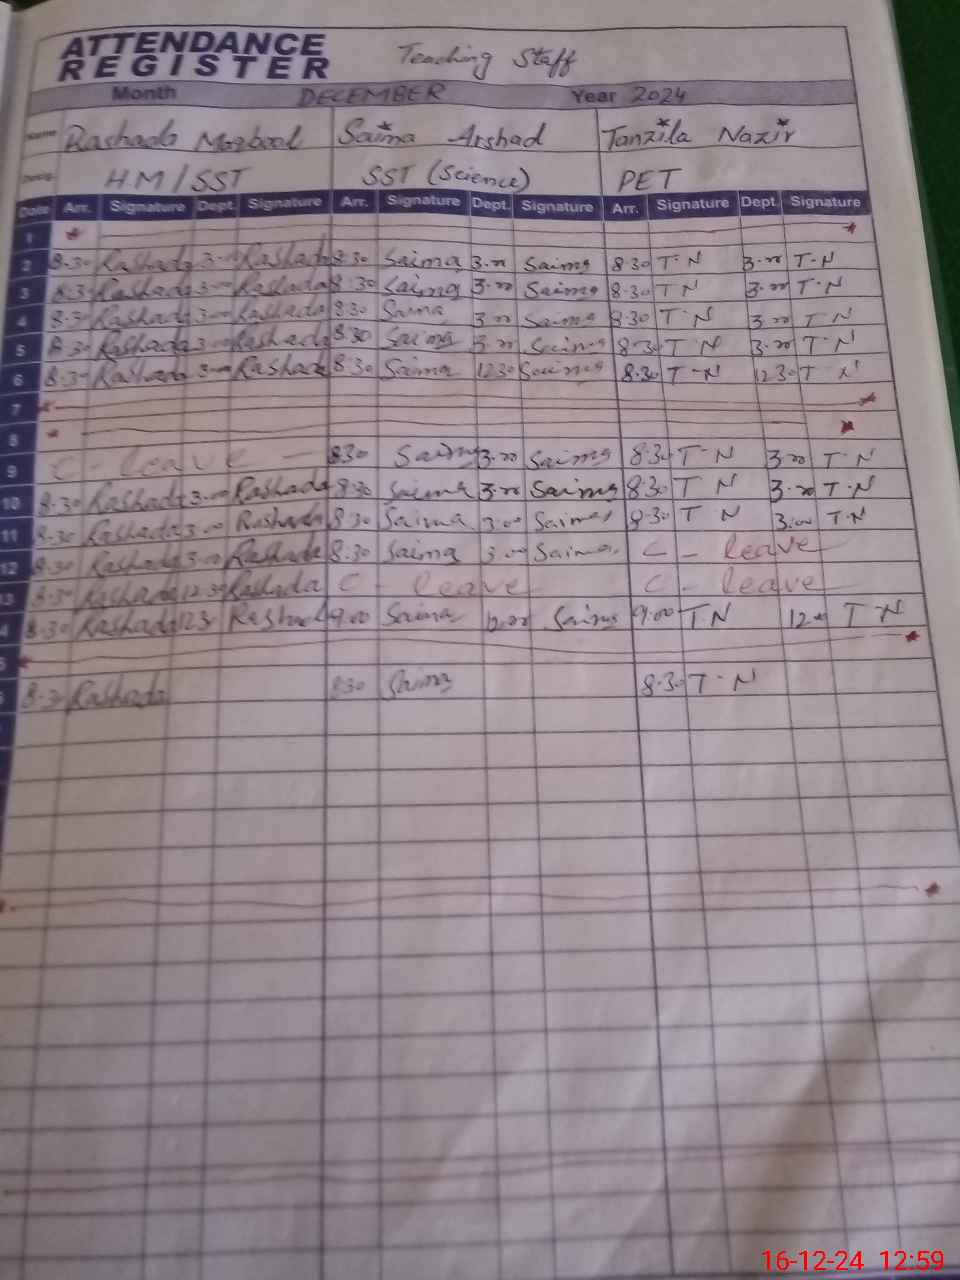 ATTENDANCE
REGISTER Teaching Staff
Month DECEMBER Year 2024
Name Rashada Maqbool Saima Arshad Tanzila Nazir
Desig. HM/SST SST (Science) PET
Date Arr. Signature Dept. Signature Arr. Signature Dept. Signature Arr. Signature Dept. Signature
1
2 8.30 Rashada 3.00 Rashada 8.30 Saima 3.00 Saima 8.30 T.N 3.00 T.N
3 8.30 Rashada 3.00 Rashada 8.30 Saima 3.00 Saima 8.30 T N 3.00 T.N
4 8.30 Rashada 3.00 Rashada 8.30 Saima 3.00 Saima 8.30 T N 3.00 T N
5 8.30 Rashada 3.00 Rashada 8.30 Saima 3.00 Saima 8.30 T N 3.00 T.N
6 8.30 Rashada 3.00 Rashada 8.30 Saima 12.30 Saima 8.30 T-N 12.30 T N
7
8
9 C - leave 8.30 Saima 3.00 Saima 8.30 T-N 3.00 T N
10 8.30 Rashada 3.00 Rashada 8.30 Saima 3.00 Saima 8.30 T N 3.00 T.N
11 8.30 Rashada 3.00 Rashada 8.30 Saima 3.00 Saima 8.30 T N 3.00 T.N
12 8.30 Rashada 3.00 Rashada 8.30 Saima 3.00 Saima C - leave
13 8.30 Rashada 12.30 Rashada C - leave C - leave
4 8.30 Rashada 12.3 Rashada 9.00 Saima 12.00 Saima 9.00 T.N 12.00 T.N
5
8.30 Rashada 8.30 Saima 8.30 T.N
16-12-24 12:59